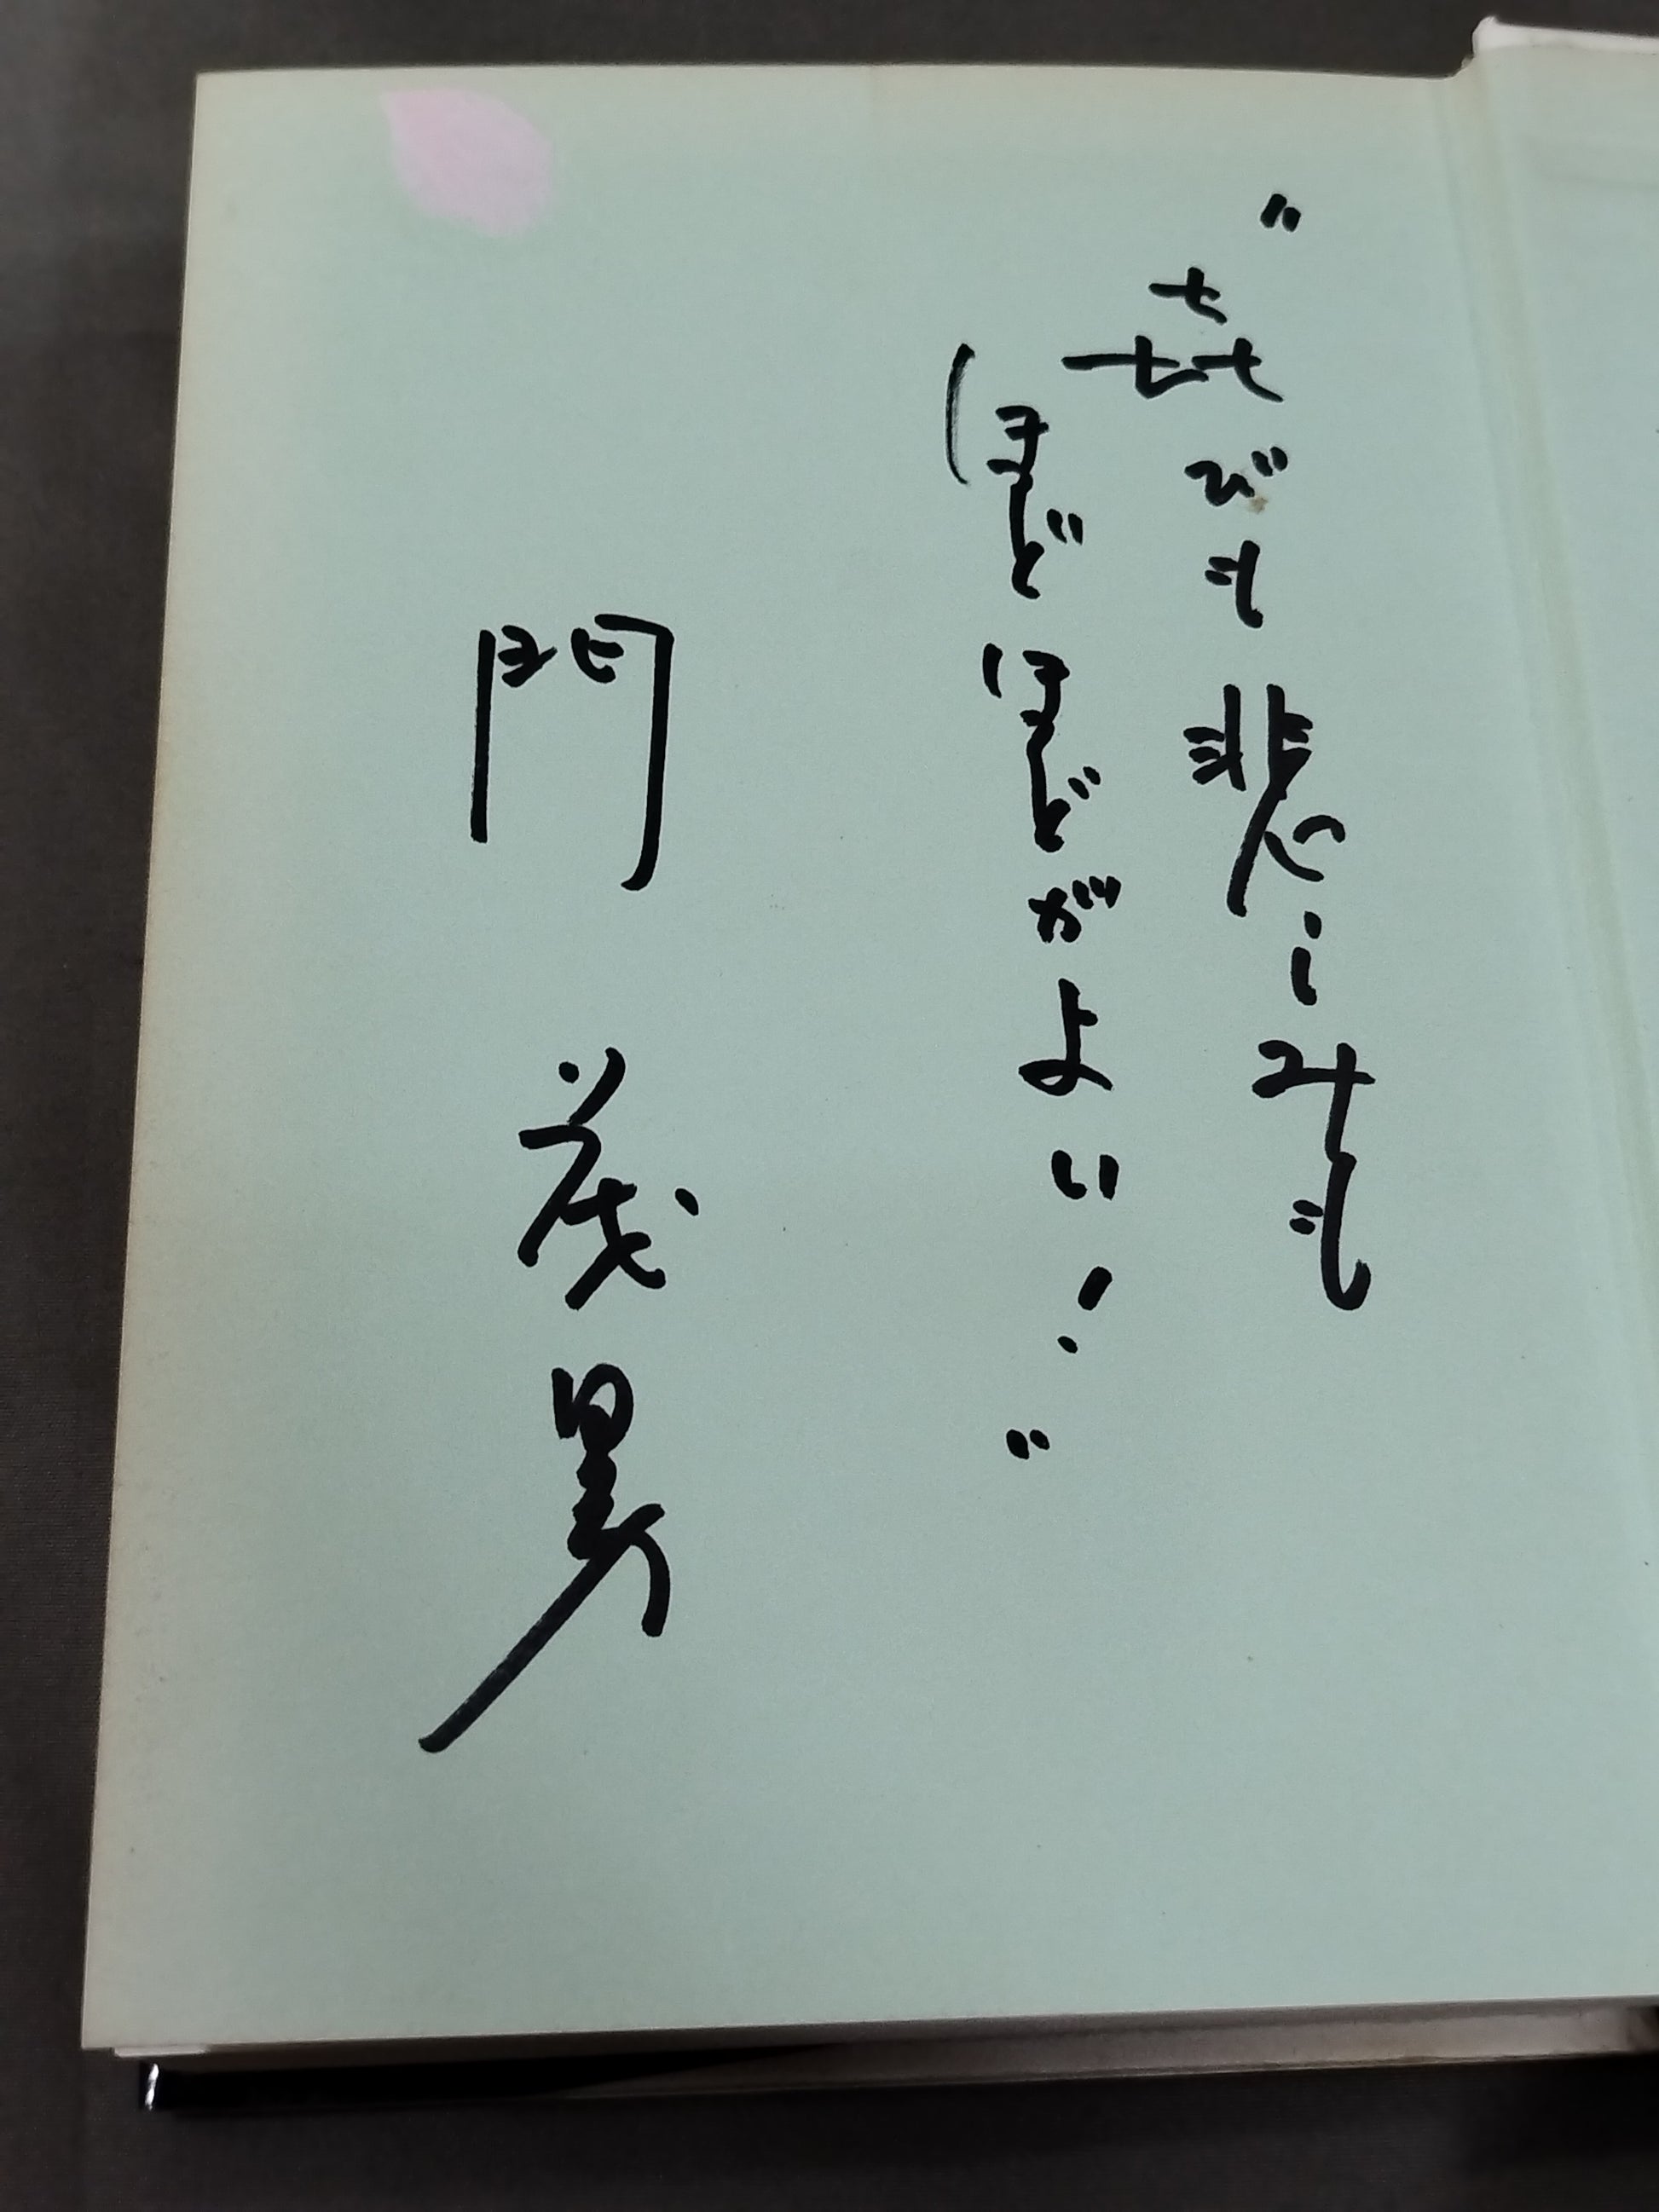 "㐂びも悲しみも
ほどほどがよい!"
門 茂男